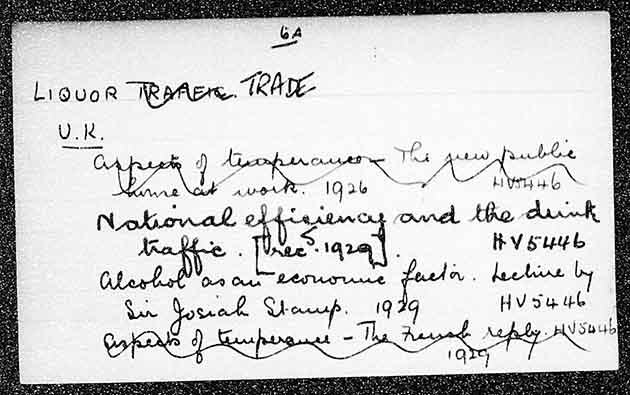 6A
LIQUOR TRAFFIC. TRADE
U.K.
Aspects of temperance – The new public
house at work. 1926 HV5446
National efficiency and the drink
traffic. [recs. 1929]. HV5446
Alcohol as an economic factor. Lecture by
Sir Josiah Stamp. 1929 HV5446
Aspects of temperance – The French reply. HV5446
1929